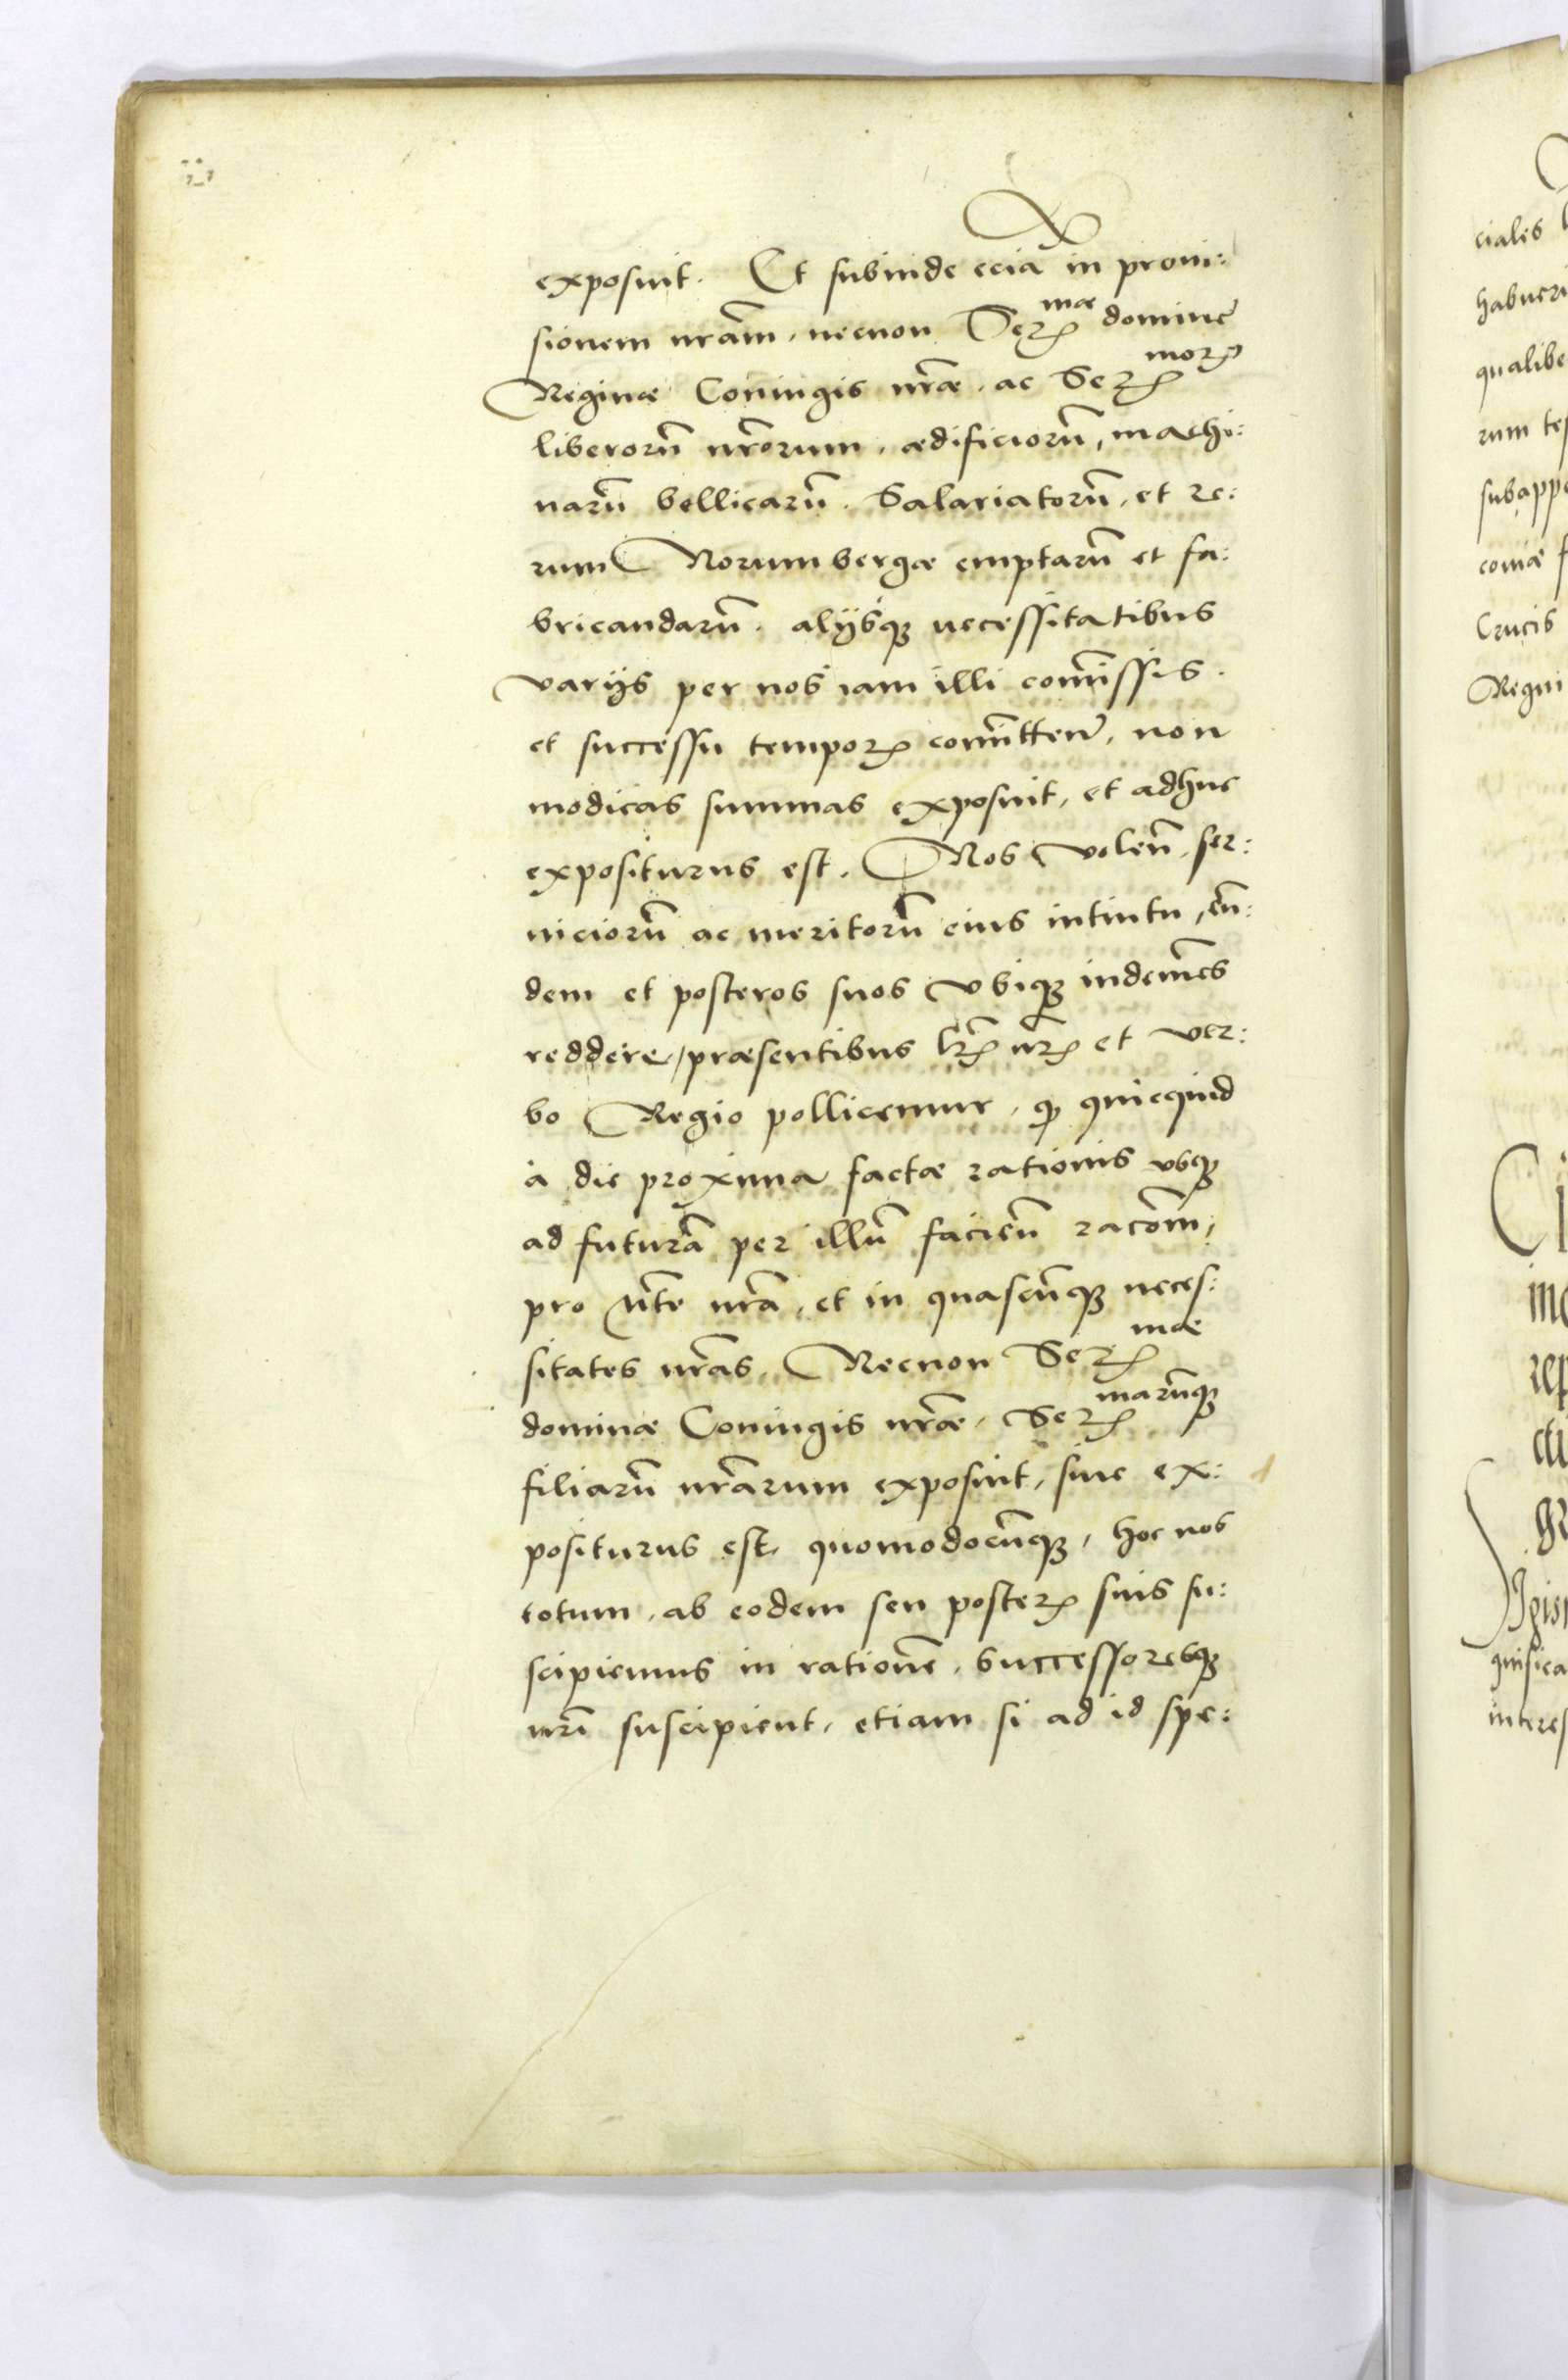 exposuit. Et subinde eciã in proui:
sionem nrãm, necnon Serꝭ mae dominę
Reginæ Coniugis nrãe, ac Serꝭ morꝭ
liberorũ nrõrum, ædificiorũ, machi:
narũ bellicarũ, Salariatorũ, et re:
rum Norumbergæ emptarũ et fa:
bricandarũ, alijsqꝫ necessitatibus
varijs per nos iam illi com̃issis.
et successu temporꝭ com̃itten̄, non
modicas summas exposuit, et adhuc
expositurus est. Nos volen̄, ser:
uiciorũ ac meritorũ eius intuitu, eũ:
dem et posteros suos vbiqꝫ indem̃es
reddere, præsentibus lrꝭ nrꝭ et ver:
bo Regio pollicemur, qꝫ quicquid
à die proxima factæ rationis vsqꝫ
ad futurã per illũ facien̄ racõm,
pro nr̃ã, et in quascũqꝫ neces:
sitates nrãs, Necnon Serꝭ mae
dominæ Coniugis nrãe, Serꝭ marũqꝫ
filiarũ nrãrum exposuit, siue ex:
positurus est, quomodocũqꝫ, hoc nos
totum, ab eodem seu posterꝭ suis su:
scipiemus in rationẽ, successoresqꝫ
nrĩ suscipient, etiam si ad id spe:
ciales
habueri
qualibe
rum te
subapp
Crucis
Regni